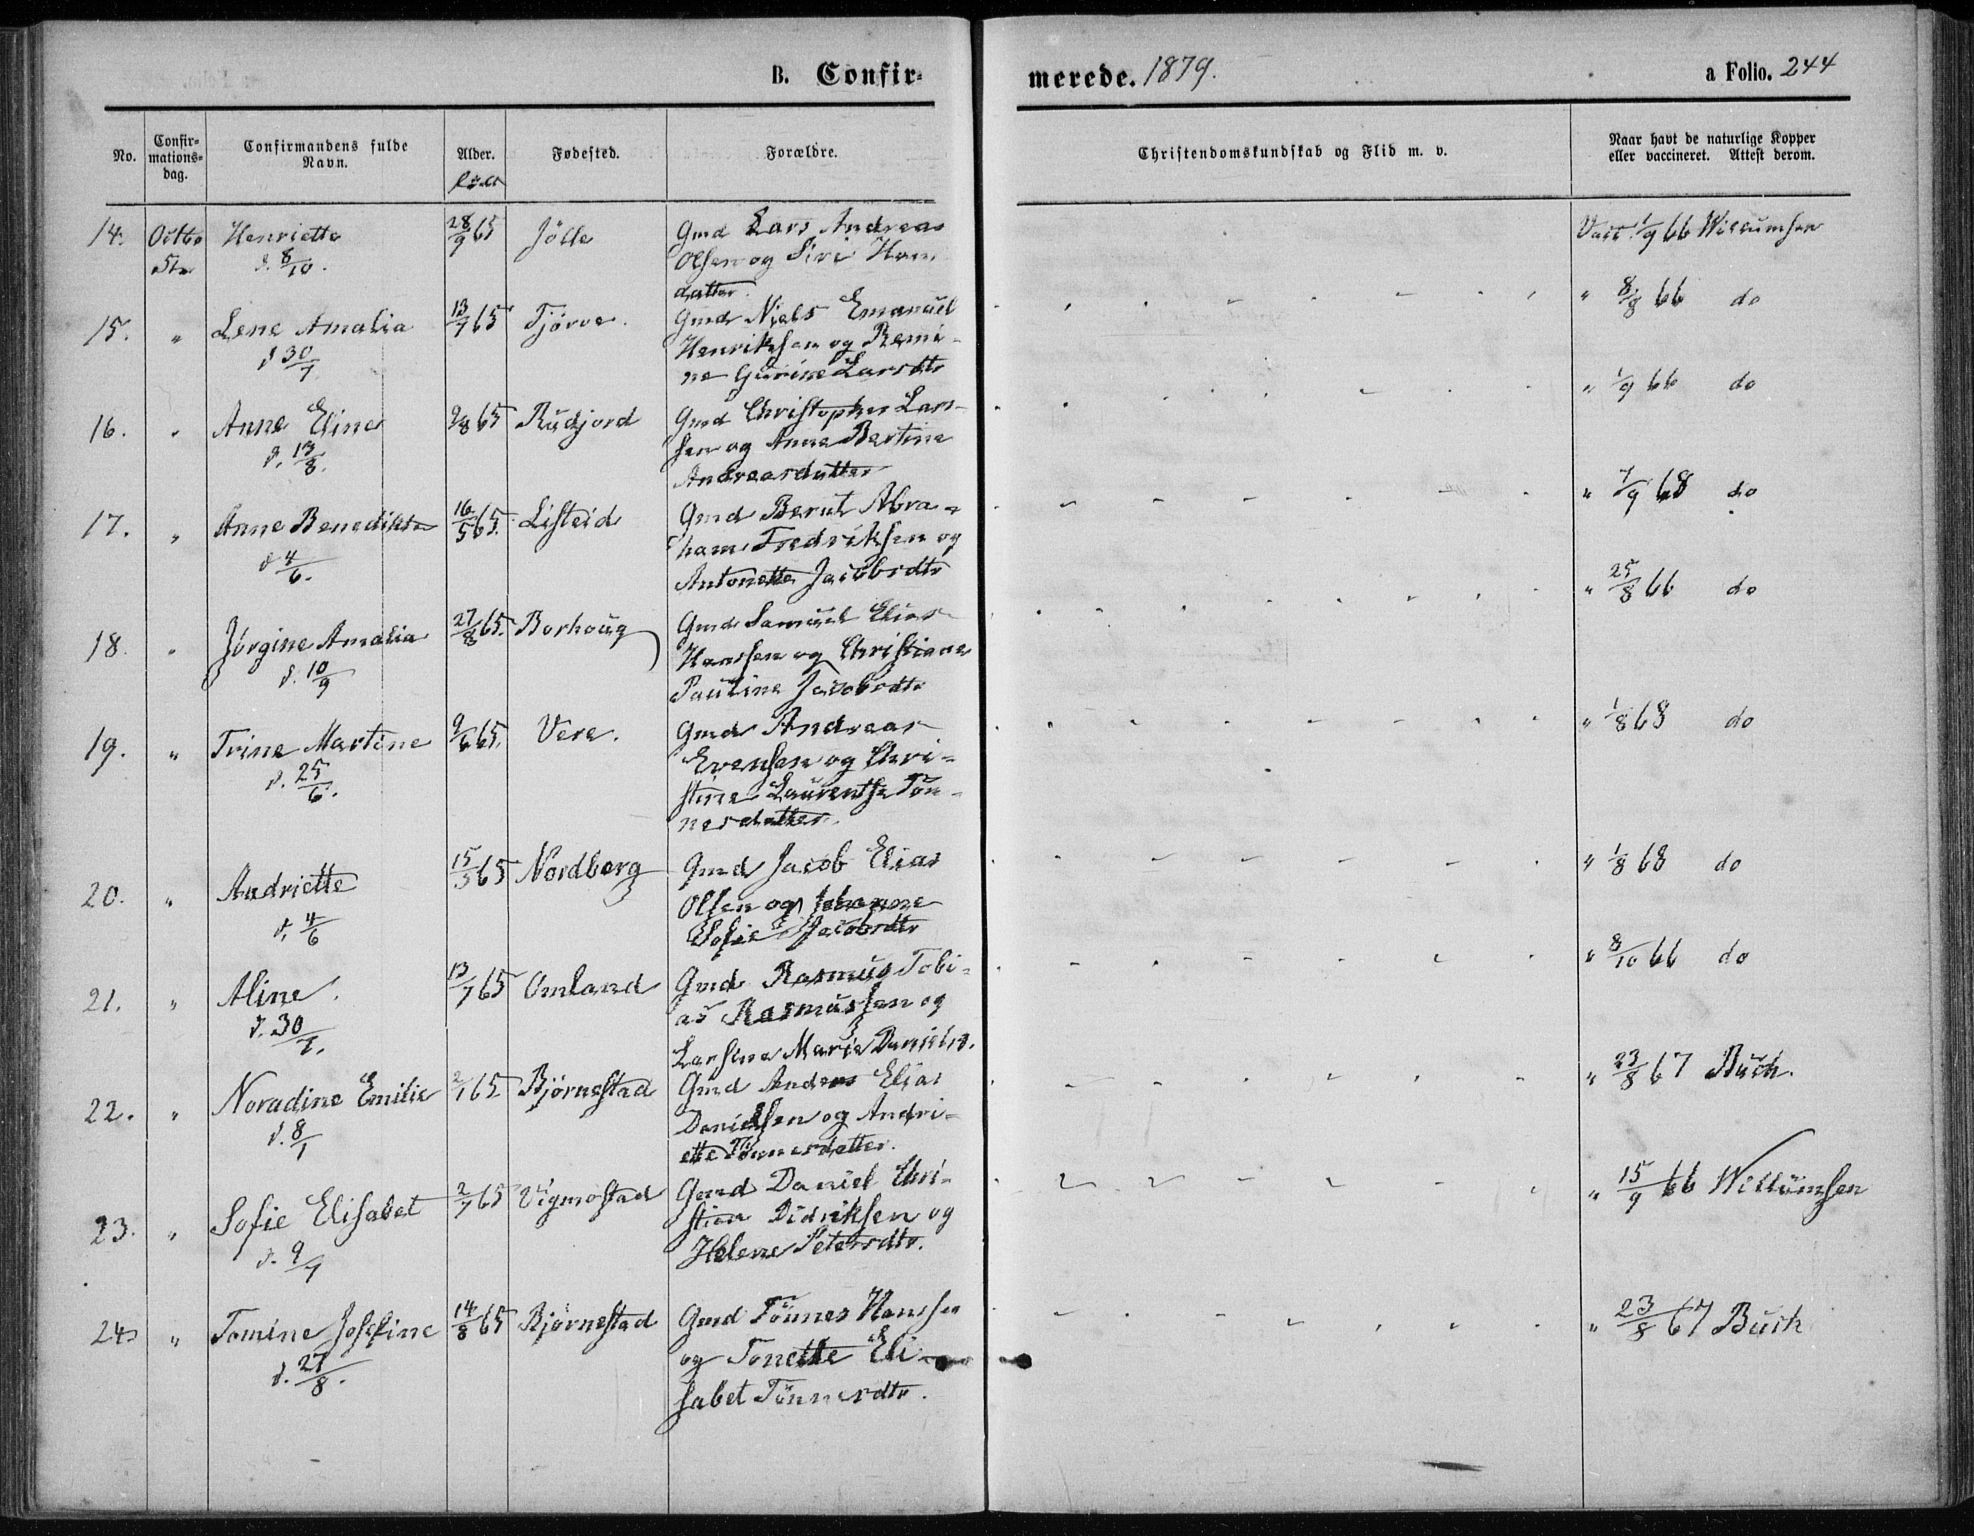 B. Confir-
merede. 1879.
a Folio. 244
No.
Confir-
mations-
dag.
Confirmandens fulde
Navn.
Alder.
Fødested.
Forældre.
Christendomskundskab og Flid m. v.
Naar havt de naturlige Kopper
eller vaccineret. Attest derom.
14. Octbr Henriette 28/9 65 Jölle Gmd Lars Andreas Vacc. 1/9 66 Willumsen
5te d. 8/10. Olsen og Siri Han
datter.
15. " Lene Amalia 13/7 65 Tjørve. Gmd Niels Emanuel " 8/8 66 do
d 30/7 Henriksen og Remi-
ne Gurine Larsdtr
16. " Anne Eline 2/8 65 Rudjord Gmd Christopher Lar- " 1/9 66 do
d. 13/8. sen og Anne Bertine
Andreasdatter
17. " Anne Benedikte 16/5 65. Listeid Gmd Berut Abra- " 7/9 68 do
d 4/6. ham Fredriksen og
Antonette Jacobsdtr
18. " Jørgine Amalia 27/8 65. Borhoug Gmd Samuel Elias " 25/8 66 do
d. 10/9 Hansen og Christiane
Pauline Jacobsdtr
19. " Trine Martine 9/6 65. Vere. Gmd Andreas " 1/8 68 do
d. 25/6. Evensen og Chri-
stine Laurentse Tøn-
nesdatter.
20. " Andriette 15/5 65 Nordberg Gmd Jacob Elias " 1/8 68 do
d. 4/6 Olsen og Johanne
Sofie Jacobsdtr
21. " Aline. 13/7 65 Omland Gmd Rasmus Tobi- " 8/10 66 do
d. 30/7. as Rasmussen og
Larsine Marie Danielsd.
22. " Noradine Emilie 2/1 65 Bjørnestad Gmd Anders Elias " 23/8 67 Buch.
d. 8/1 Danielsen og Andri-
ette Tönnesdatter.
23. " Sofie Elisabet 2/7 65 Vigmostad Gmd Daniel Chri- " 15/9 66 Willumsen
d. 9/7 stian Didriksen og
Helene Petersdtr.
24. " Tomine Josefine 14/8 65 Bjørnestad Gmd Tönnes Hansen " 23/8 67 Buch
d. 27/8. og Tonette Eli-
sabet Tönnesdtr.